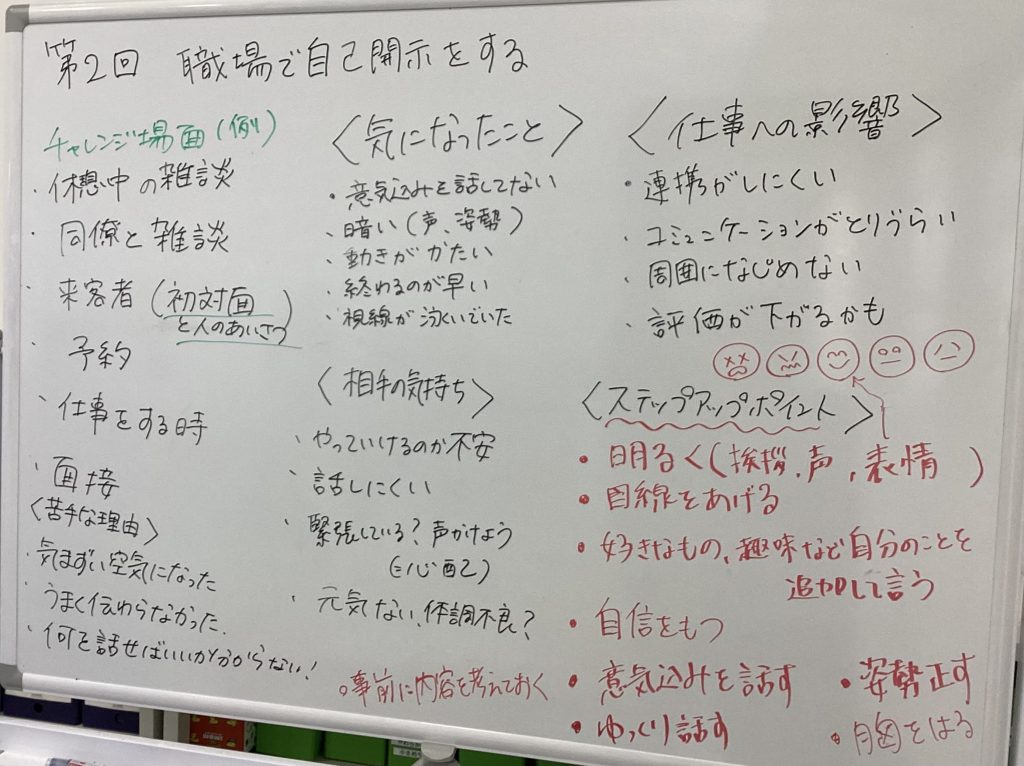 第2回 職場で自己開示をする
チャレンジ場面(例)
・休憩中の雑談
・同僚と雑談
・来客者(初対面
と人のあいさつ)
・予約
・仕事をする時
・面接
〈苦手な理由〉
・気まずい空気になった
・うまく伝わらなかった.
・何を話せばいいか分からない!
〈気になったこと〉
・意気込みを話してない
・暗い(声、姿勢)
・動きがかたい
・終わるのが早い
・視線が泳いでいた
〈相手の気持ち〉
・やっていけるのか不安
・話しにくい
・緊張している?声かけよう
(心配)
・元気ない、体調不良?
〈仕事への影響〉
・連携がしにくい
・コミュニケーションがとりづらい
・周囲になじめない
・評価が下がるかも
〈ステップアップポイント〉
・明るく(挨拶、声、表情)
・目線をあげる
・好きなもの、趣味など自分のことを
追加して言う
・自信をもつ
・意気込みを話す
・姿勢正す
・ゆっくり話す
・胸をはる
○事前に内容を考えておく